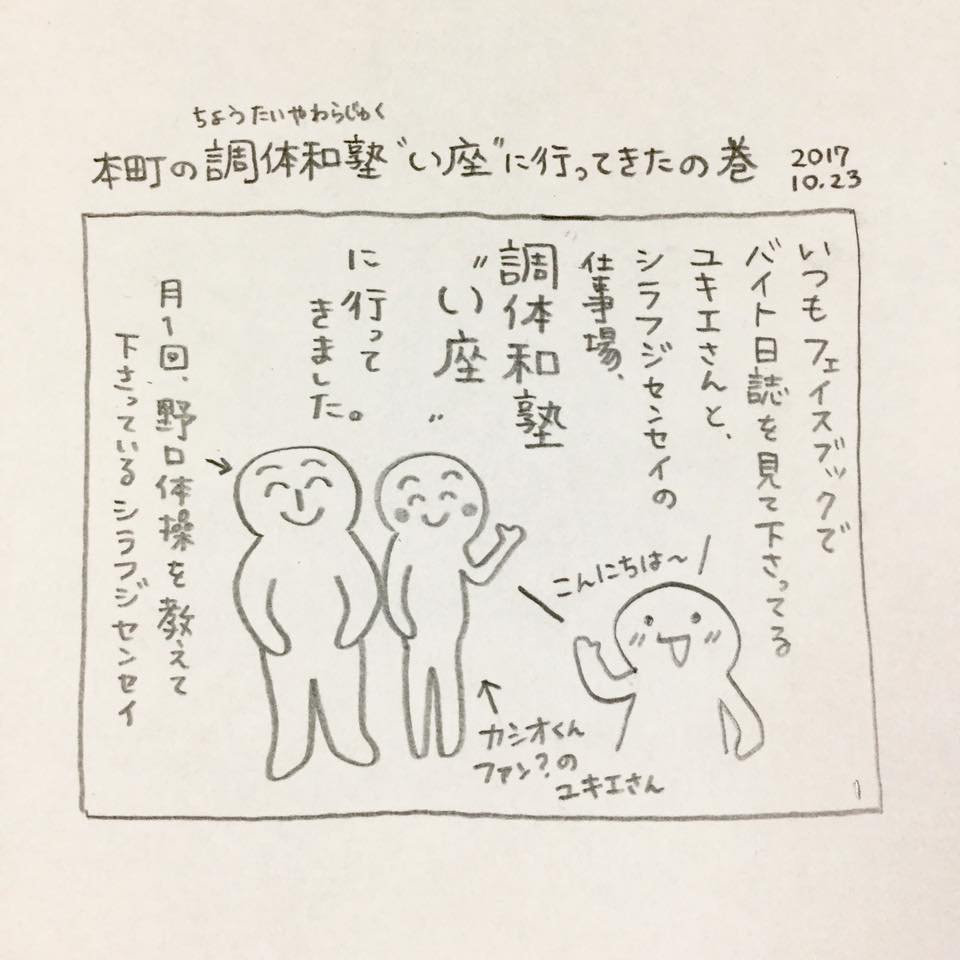 ちょうたいやわらじゅく
本町の調体和塾“い座”に行ってきたの巻
2017
10.23
いつもフェイスブックで
バイト日誌を見て下さってる
ユキエさんと、
シラフジセンセイの
仕事場、
調体和塾
“い座”
に行って
きました。
月1回、野口体操を教えて
下さっているシラフジセンセイ
こんにちは〜
カシオくん
ファン?の
ユキエさん
1